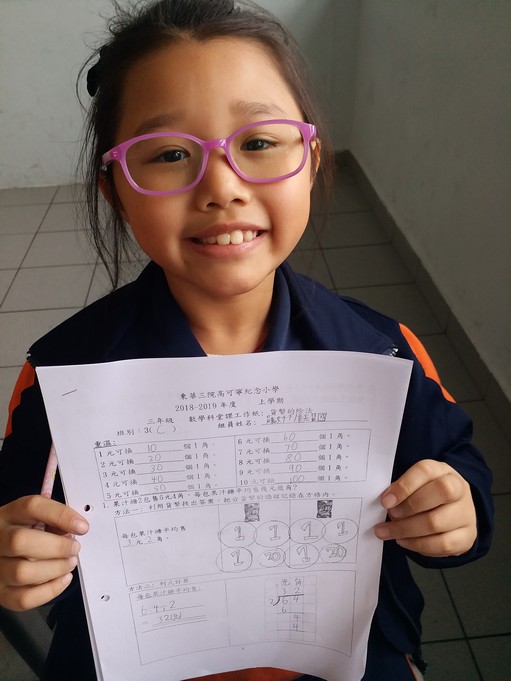 東華三院高可寧紀念小學
2018-2019年度 上學期
三年級 數學科堂課工作紙：貨幣的除法
班別：3( C ) 組員姓名：
重溫：
1 元可換 10 個1角。 6 元可換 60 個1角。
2 元可換 20 個1角。 7 元可換 70 個1角。
3 元可換 30 個1角。 8 元可換 80 個1角。
4 元可換 40 個1角。 9 元可換 90 個1角。
5 元可換 50 個1角。 10 元可換 100 個1角。
1. 果汁糖2包售6元4角，每包果汁糖平均售幾元幾角？
方法一：利用貨幣找出答案，把
在方格內。
每包果汁糖平均售
3 元 2 角。
1 1 1 1
1 20 1 20
方法二：列式計算
每包果汁糖平均售：
6.4÷2
元 角
3 2
2 6 4
6
4
4